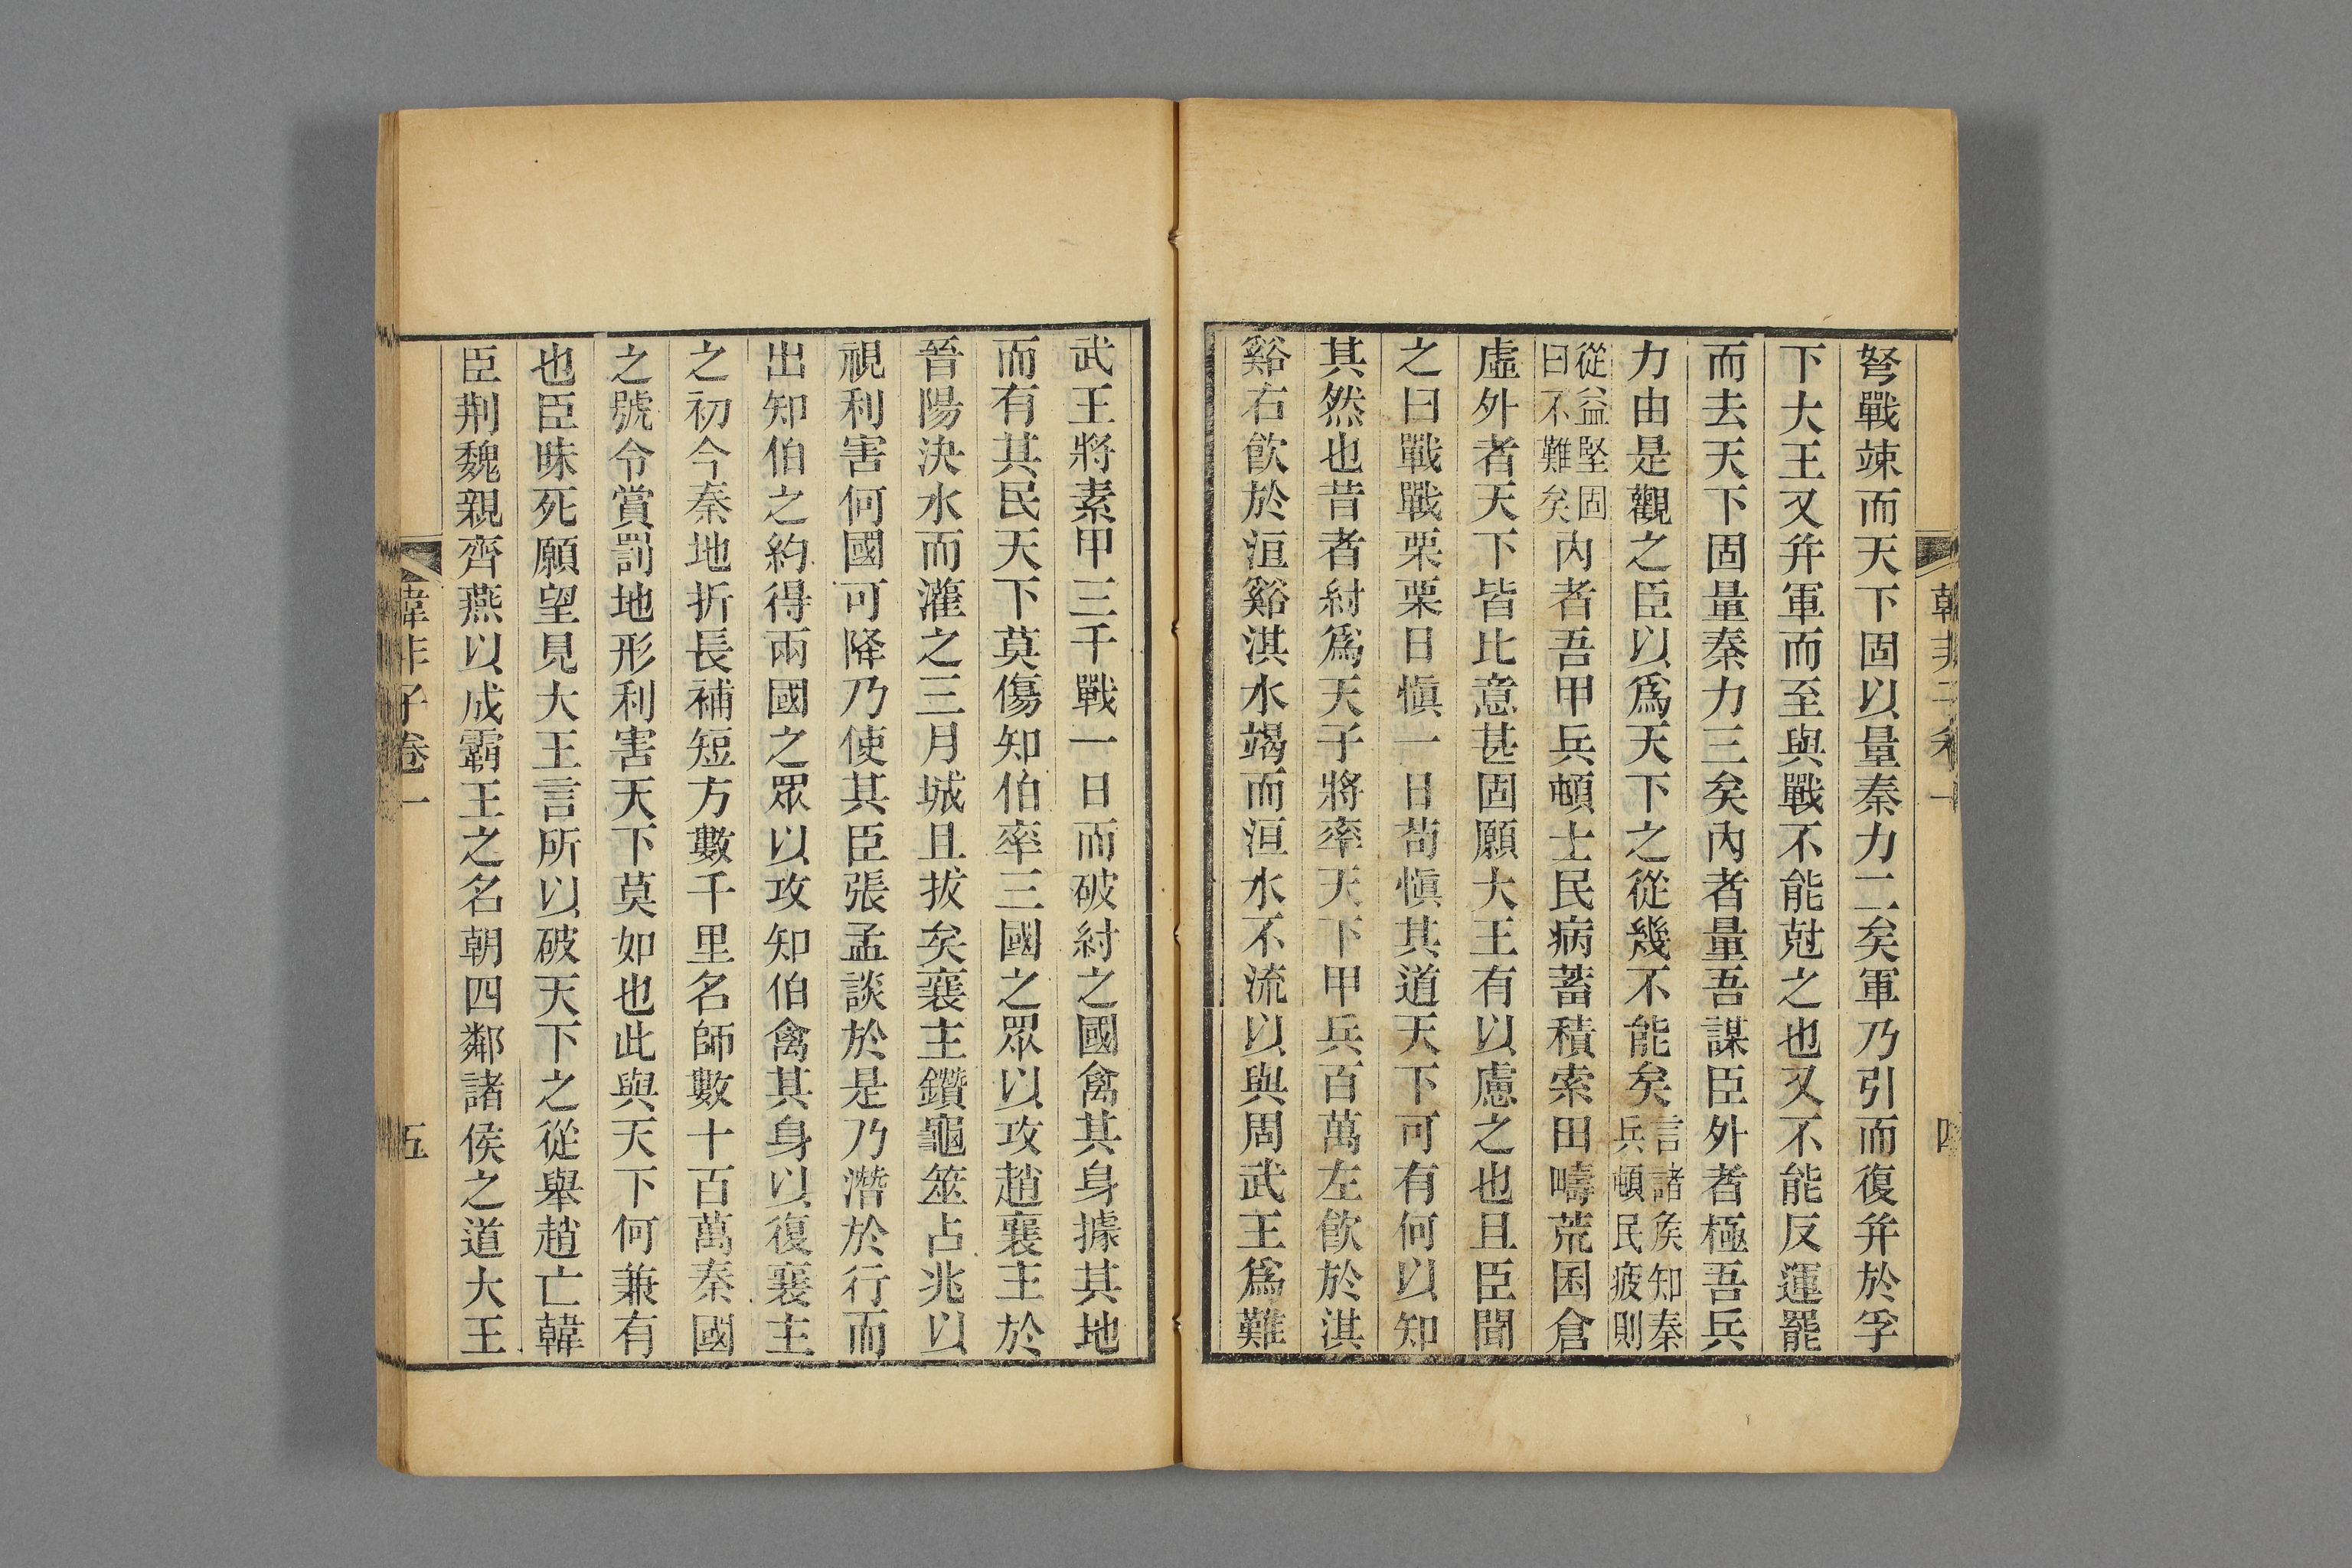 弩戰竦而天下固以量秦力二矣軍乃引而復并於孚
下大王又并軍而至與戰不能尅之也又不能反運罷
而去天下固量秦力三矣內者量吾謀臣外者極吾兵
力由是觀之臣以爲天下之從幾不能矣言諸矦知秦兵頓民疲則
從益堅固曰不難矣內者吾甲兵頓士民病蓄積索田疇荒囷倉
虛外者天下皆比意甚固願大王有以慮之也且臣聞
之曰戰戰栗栗日愼一日苟愼其道天下可有何以知
其然也昔者紂爲天子將率天下甲兵百萬左飮於淇
谿右飮於洹谿淇水竭而洹水不流以與周武王爲難
韓非子卷一
四
武王將素甲三千戰一日而破紂之國禽其身據其地
而有其民天下莫傷知伯率三國之眾以攻趙襄主於
晉陽決水而灌之三月城且拔矣襄主鑽龜筮占兆以
視利害何國可降乃使其臣張孟談於是乃潛於行而
出知伯之約得兩國之眾以攻知伯禽其身以復襄主
之初今秦地折長補短方數千里名師數十百萬秦國
之號令賞罰地形利害天下莫如也此與天下何兼有
也臣昧死願望見大王言所以破天下之從舉趙亡韓
臣荆魏親齊燕以成霸王之名朝四鄰諸侯之道大王
韓非子卷一
五